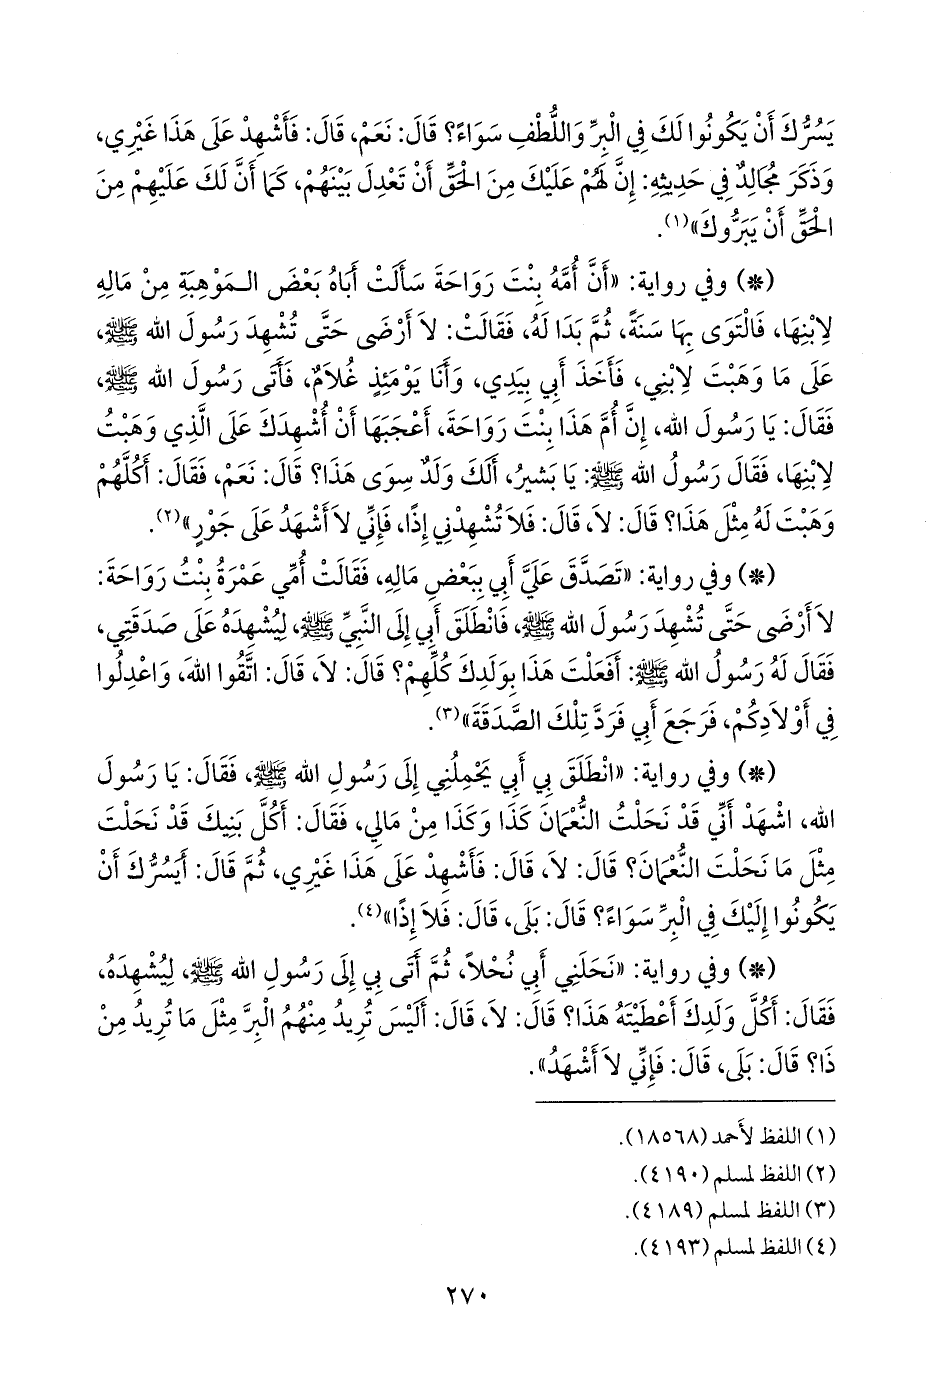 يَسُرُّكَ أَنْ يَكُونُوا لَكَ فِي الْبِرِّ وَاللُّطْفِ سَوَاءً؟ قَالَ: نَعَمْ، قَالَ: فَأَشْهِدْ عَلَى هَذَا غَيْرِي،
وَذَكَرَ مُجَالِدٌ فِي حَدِيثِهِ: إِنَّ لَهُمْ عَلَيْكَ مِنَ الْحَقِّ أَنْ تَعْدِلَ بَيْنَهُمْ، كَمَا أَنَّ لَكَ عَلَيْهِمْ مِنَ
الْحَقِّ أَنْ يَبَرُّوكَ»(١).
(*) وفي رواية: «أَنَّ أُمَّهُ بِنْتَ رَوَاحَةَ سَأَلَتْ أَبَاهُ بَعْضَ الـمَوْهِبَةِ مِنْ مَالِهِ
لِابْنِهَا، فَالْتَوَى بِهَا سَنَةً، ثُمَّ بَدَا لَهُ، فَقَالَتْ: لاَ أَرْضَى حَتَّى تُشْهِدَ رَسُولَ الله ﷺ،
عَلَى مَا وَهَبْتَ لِابْنِي، فَأَخَذَ أَبِي بِيَدِي، وَأَنَا يَوْمَئِذٍ غُلَامٌ، فَأَتَى رَسُولَ الله ﷺ،
فَقَالَ: يَا رَسُولَ الله، إِنَّ أُمَّ هَذَا بِنْتَ رَوَاحَةَ، أَعْجَبَهَا أَنْ أُشْهِدَكَ عَلَى الَّذِي وَهَبْتُ
لِابْنِهَا، فَقَالَ رَسُولُ الله ﷺ: يَا بَشِيرُ، أَلَكَ وَلَدٌ سِوَى هَذَا؟ قَالَ: نَعَمْ، فَقَالَ: أَكُلَّهُمْ
وَهَبْتَ لَهُ مِثْلَ هَذَا؟ قَالَ: لاَ، قَالَ: فَلاَ تُشْهِدْنِي إِذًا، فَإِنِّي لاَ أَشْهَدُ عَلَى جَوْرٍ»(٢).
(*) وفي رواية: «تَصَدَّقَ عَلَيَّ أَبِي بِبَعْضِ مَالِهِ، فَقَالَتْ أُمِّي عَمْرَةُ بِنْتُ رَوَاحَةَ:
لاَ أَرْضَى حَتَّى تُشْهِدَ رَسُولَ الله ﷺ، فَانْطَلَقَ أَبِي إِلَى النَّبِيِّ ﷺ، لِيُشْهِدَهُ عَلَى صَدَقَتِي،
فَقَالَ لَهُ رَسُولُ الله ﷺ: أَفَعَلْتَ هَذَا بِوَلَدِكَ كُلِّهِمْ؟ قَالَ: لاَ، قَالَ: اتَّقُوا اللهَ، وَاعْدِلُوا
فِي أَوْلَادِكُمْ، فَرَجَعَ أَبِي فَرَدَّ تِلْكَ الصَّدَقَةَ»(٣).
(*) وفي رواية: «انْطَلَقَ بِي أَبِي يَحْمِلُنِي إِلَى رَسُولِ الله ﷺ، فَقَالَ: يَا رَسُولَ
الله، اشْهَدْ أَنِّي قَدْ نَحَلْتُ النُّعْمَانَ كَذَا وَكَذَا مِنْ مَالِي، فَقَالَ: أَكُلَّ بَنِيكَ قَدْ نَحَلْتَ
مِثْلَ مَا نَحَلْتَ النُّعْمَانَ؟ قَالَ: لاَ، قَالَ: فَأَشْهِدْ عَلَى هَذَا غَيْرِي، ثُمَّ قَالَ: أَيَسُرُّكَ أَنْ
يَكُونُوا إِلَيْكَ فِي الْبِرِّ سَوَاءً؟ قَالَ: بَلَى، قَالَ: فَلاَ إِذًا»(٤).
(*) وفي رواية: «نَحَلَنِي أَبِي نُحْلاً، ثُمَّ أَتَى بِي إِلَى رَسُولِ الله ﷺ، لِيُشْهِدَهُ،
فَقَالَ: أَكُلَّ وَلَدِكَ أَعْطَيْتَهُ هَذَا؟ قَالَ: لاَ، قَالَ: أَلَيْسَ تُرِيدُ مِنْهُمُ الْبِرَّ مِثْلَ مَا تُرِيدُ مِنْ
ذَا؟ قَالَ: بَلَى، قَالَ: فَإِنِّي لاَ أَشْهَدُ».
(١) اللفظ لأحمد (١٨٥٦٨).
(٢) اللفظ لمسلم (٤١٩٠).
(٣) اللفظ لمسلم (٤١٨٩).
(٤) اللفظ لمسلم (٤١٩٣).
٢٧٠